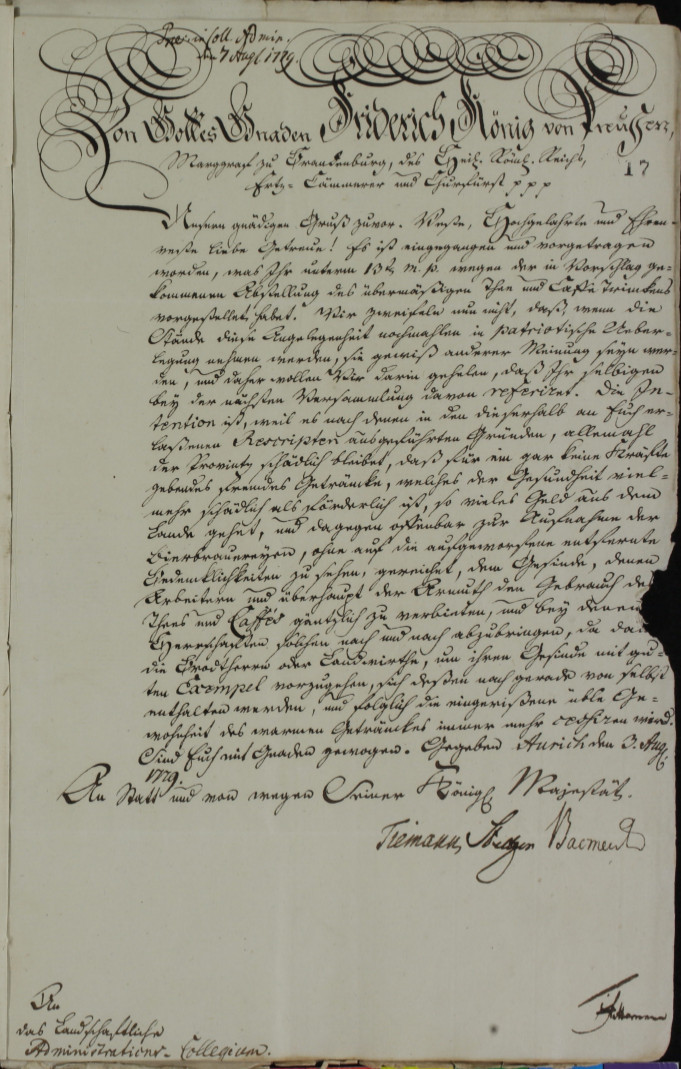 Von Gottes Gnaden Friderich König von Preussen,
Marggraf zu Brandenburg, des Heil. Röm. Reichs,
17
Ertz-Cämmerer und Churfürst p p p
Unsern gnädigen Gruß zuvor. Veste, Hochgelahrte und Ehren-
veste liebe Getreue! Es ist eingegangen und vorgetragen
worden, was Ihr unterm 13t. m. p. wegen der in Vorschlag ge-
kommenen Abstellung des übermäßigen Thee und Caffé trinkens
vorgestellet habet. Wir zweifeln nun nicht, daß, wenn die
Stände diese Angelegenheit nochmahlen in patriotische Ueber-
legung nehmen werden, sie gewiß anderer Meinung seyn wer-
den, und daher wollen Wir darin gehelen, daß Ihr selbigen
bey der nächsten Versammlung davon referiret. Die In-
tention ist, weil es nach denen in den dieserhalb an Euch er-
laßenen Rescripten ausgeführten Gründen, allemahl
der Provintz schädlich bleibet, daß für ein gar keine Kräfte
gebendes fremdes Getränke, welches der Gesundheit viel-
mehr schädlich als förderlich ist, so vieles Geld aus dem
Lande gehet, und dagegen offenbar zur Aufnahme der
Bierbrauereyen, ohne auf die aufgeworfene entfernte
Bedenklichkeiten zu sehen, gereichet, dem Gesinde, denen
Arbeitern und überhaupt der Armuth den Gebrauch des
Thees und Caffés gäntzlich zu verbieten, und bey denen
Herrschaften solchen nach und nach abzubringen, da dann
die Brodtherrn oder Landwirthe, um ihren Gesinde mit gu-
ten Exempel vorzugehen, sich deßen nachgerade von selbst
enthalten werden, und folglich die eingerißene üble Ge-
wohnheit des warmen Getränckes immer mehr cessiren wird.
Sind Euch mit Gnaden gewogen. Gegeben Aurich den 3. Aug.
1779.
An Statt und von wegen Seiner Königl. Majestät.
Tiemann Bacmeister
An
das Landschaftliche
Administrations-Collegium.